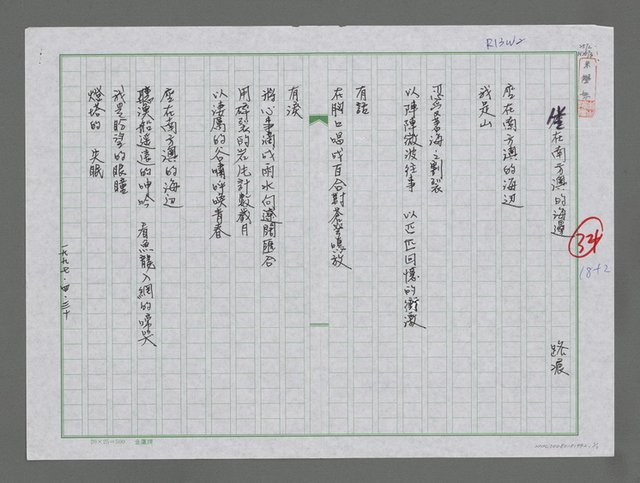 R13W2
坐在南方澳的海邊
34
18+2
路痕
坐在南方澳的海边
我是山
恐蒼海之割裂
以陣陣微波往事 以匹匹回憶的衝激
有話
在胸口唱成百合對蒼空嗥放
有淚
將心事滴成雨水向遼闊匯合
用碎裂的岩片計數歲月
以淒厲的谷嘯呼喚青春
坐在南方澳的海边
聽漁船遙遠的呻吟 看魚龍入網的啼哭
我是盼望的眼瞳
燈塔的 失眠
一九九七.四.二十
20×25=500